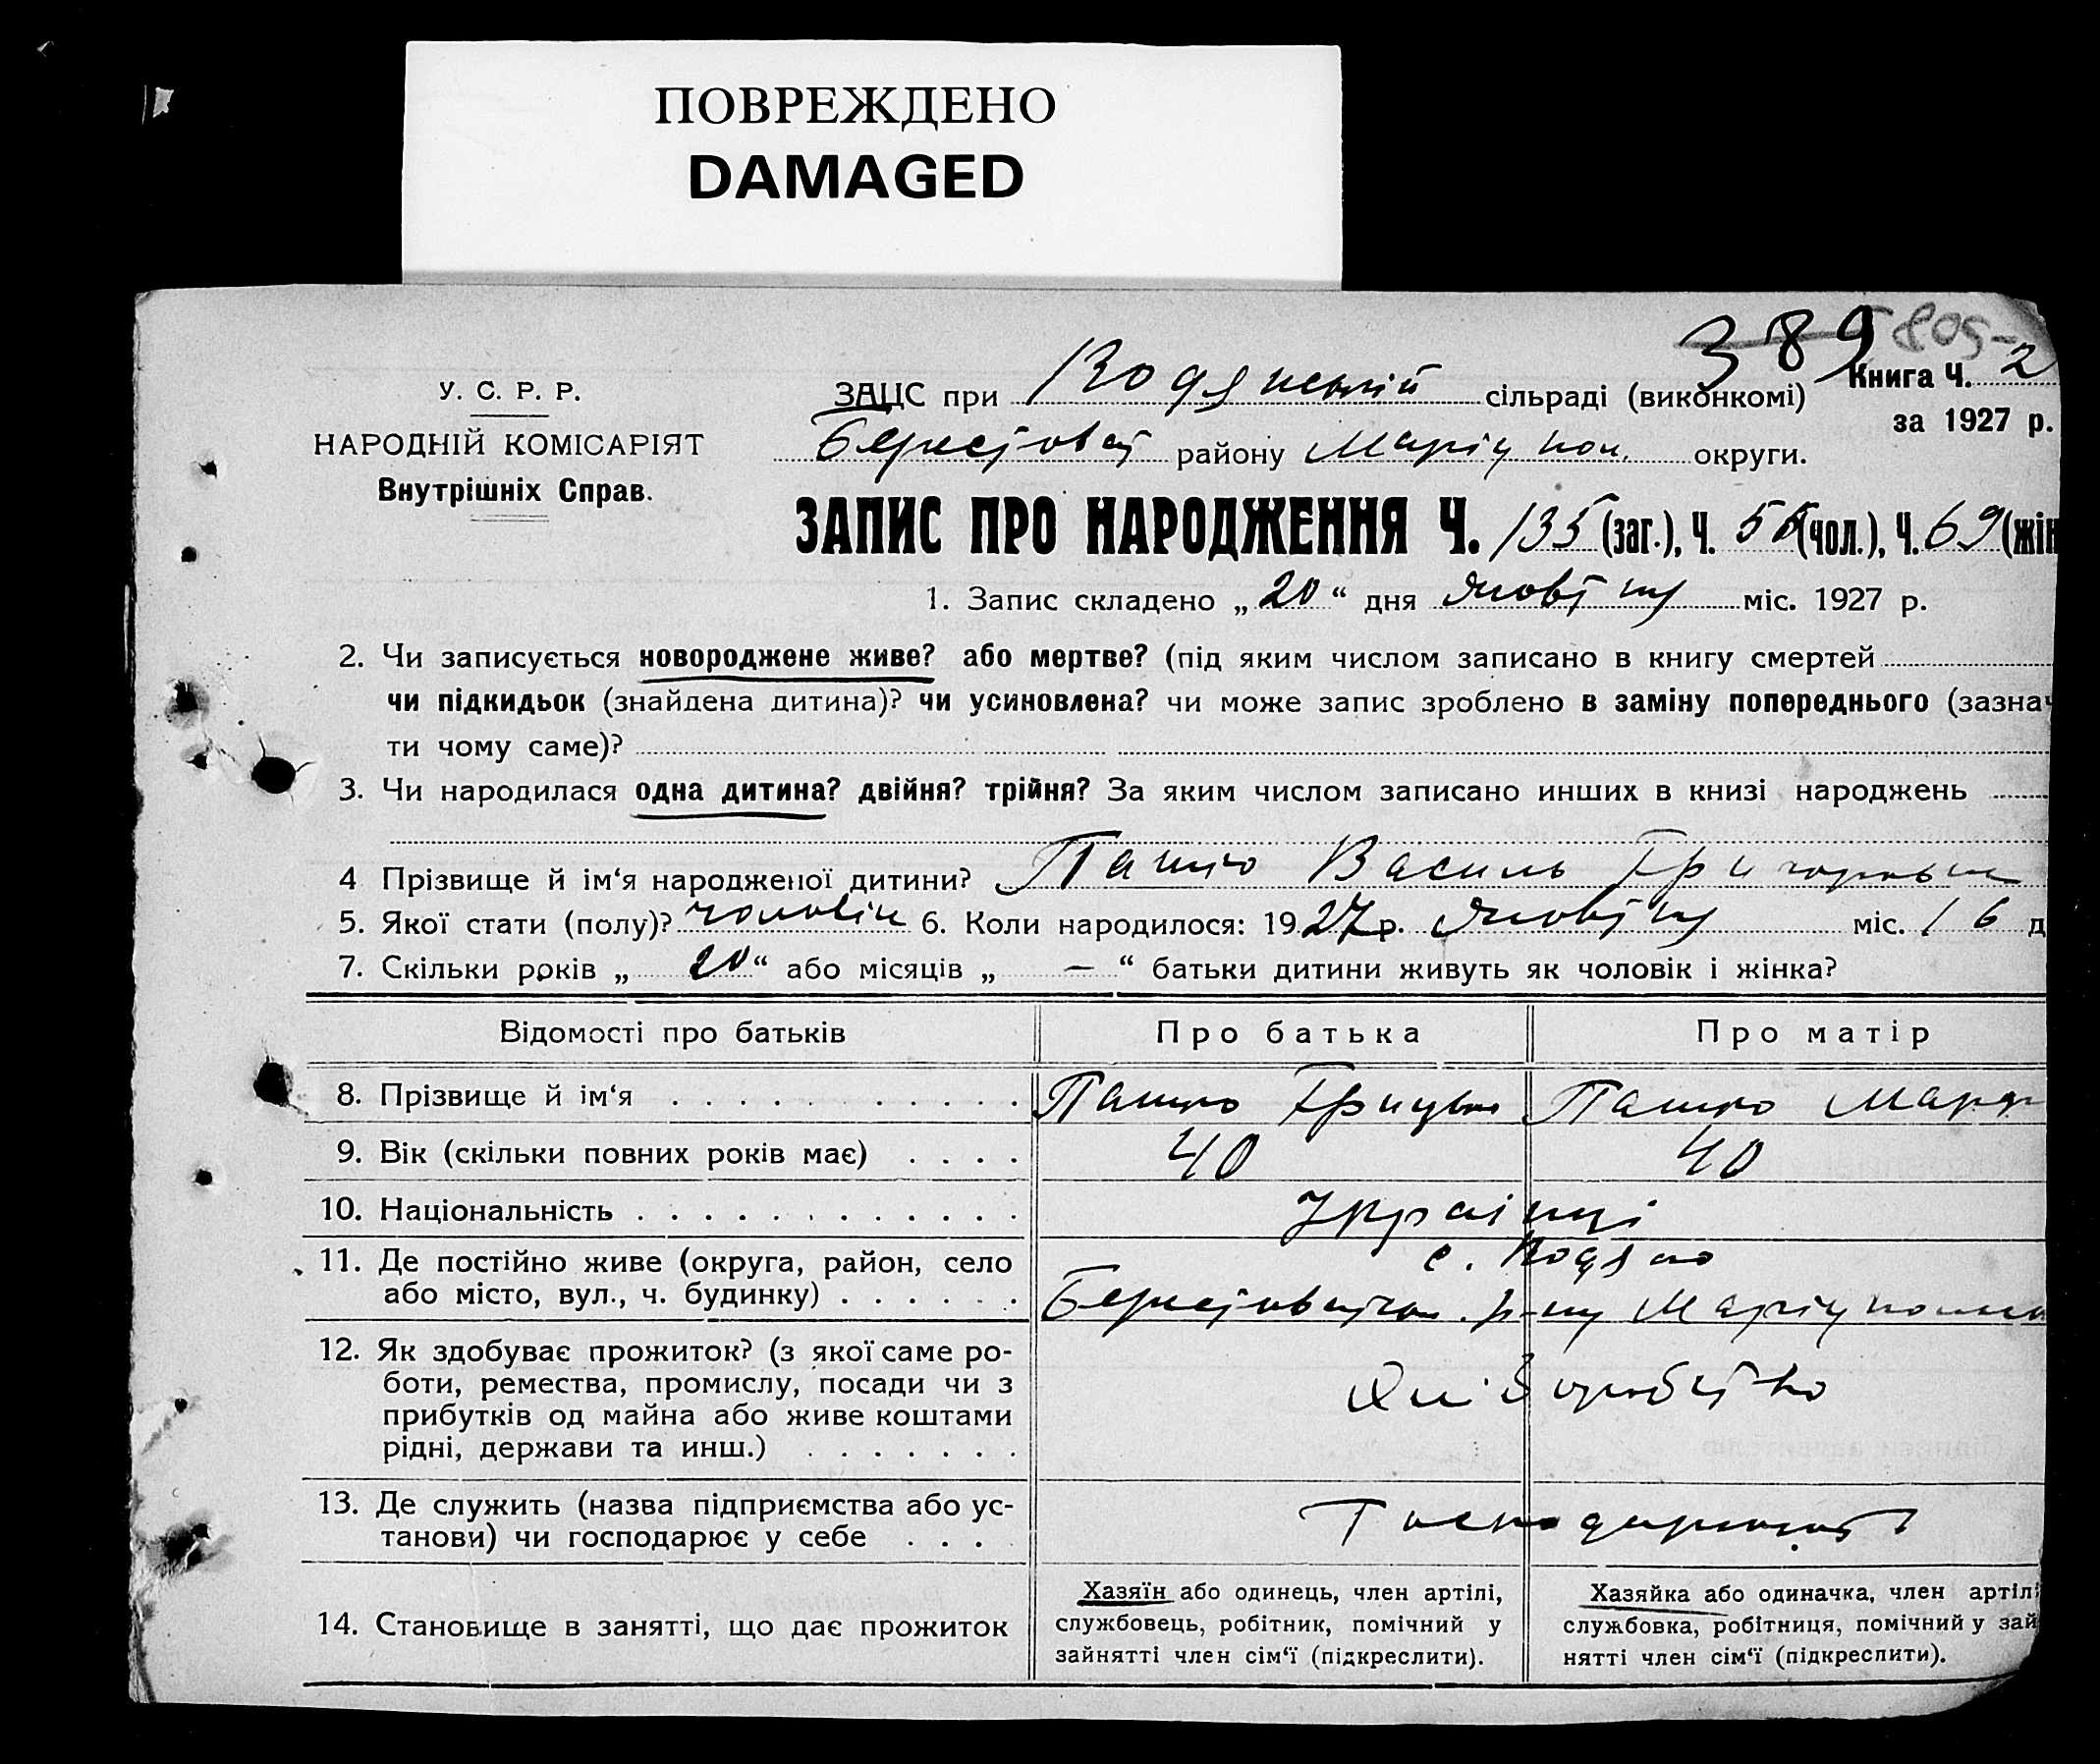 ПОВРЕЖДЕНО
DAMAGED
389 805-
У. С. Р. Р.
НАРОДНІЙ КОМІСАРІЯТ
Внутрішніх Справ.
ЗАЦС при Водянській сільраді (виконкомі)
Книга Ч. 2
за 1927 р.
району Маріупол. округи.
ЗАПИС ПРО НАРОДЖЕННЯ Ч. 135 (заг.), Ч. (чол.), Ч. 69 (жін
1. Запис складено „ 20 “ дня міс. 1927 р.
2. Чи записується новороджене живе? або мертве? (під яким числом записано в книгу смертей
чи підкидьок (знайдена дитина)? чи усиновлена? чи може запис зроблено в заміну попереднього (зазнач
ти чому саме)?
3. Чи народилася одна дитина? двійня? трійня? За яким числом записано инших в книзі народжень
4 Прізвище й ім‘я народженої дитини? Пашко Василь
5. Якої стати (полу)? чоловік 6. Коли народилося: 1927 р. міс. 16 д
7. Скільки років „ 20 “ або місяців „ — “ батьки дитини живуть як чоловік і жінка?
Відомості про батьків Про батька Про матір
8. Прізвище й ім‘я Пашко Грицько Пашко Марф
9. Вік (скільки повних років має) 40 40
10. Національність Українці
11. Де постійно живе (округа, район, село с. Водяно
або місто, вул., ч. будинку) р-ну
12. Як здобуває прожиток? (з якої саме ро-
боти, ремества, промислу, посади чи з Хліборобство
прибутків од майна або живе коштами
рідні, держави та инш.)
13. Де служить (назва підприємства або ус- Господарюють
танови) чи господарює у себе
14. Становище в занятті, що дає прожиток
Хазяїн або одинець, член артілі,
службовець, робітник, помічний у
зайнятті член сім‘ї (підкреслити).
Хазяйка або одиначка, член артілі
службовка, робітниця, помічний у зай
нятті член сім‘ї (підкреслити).